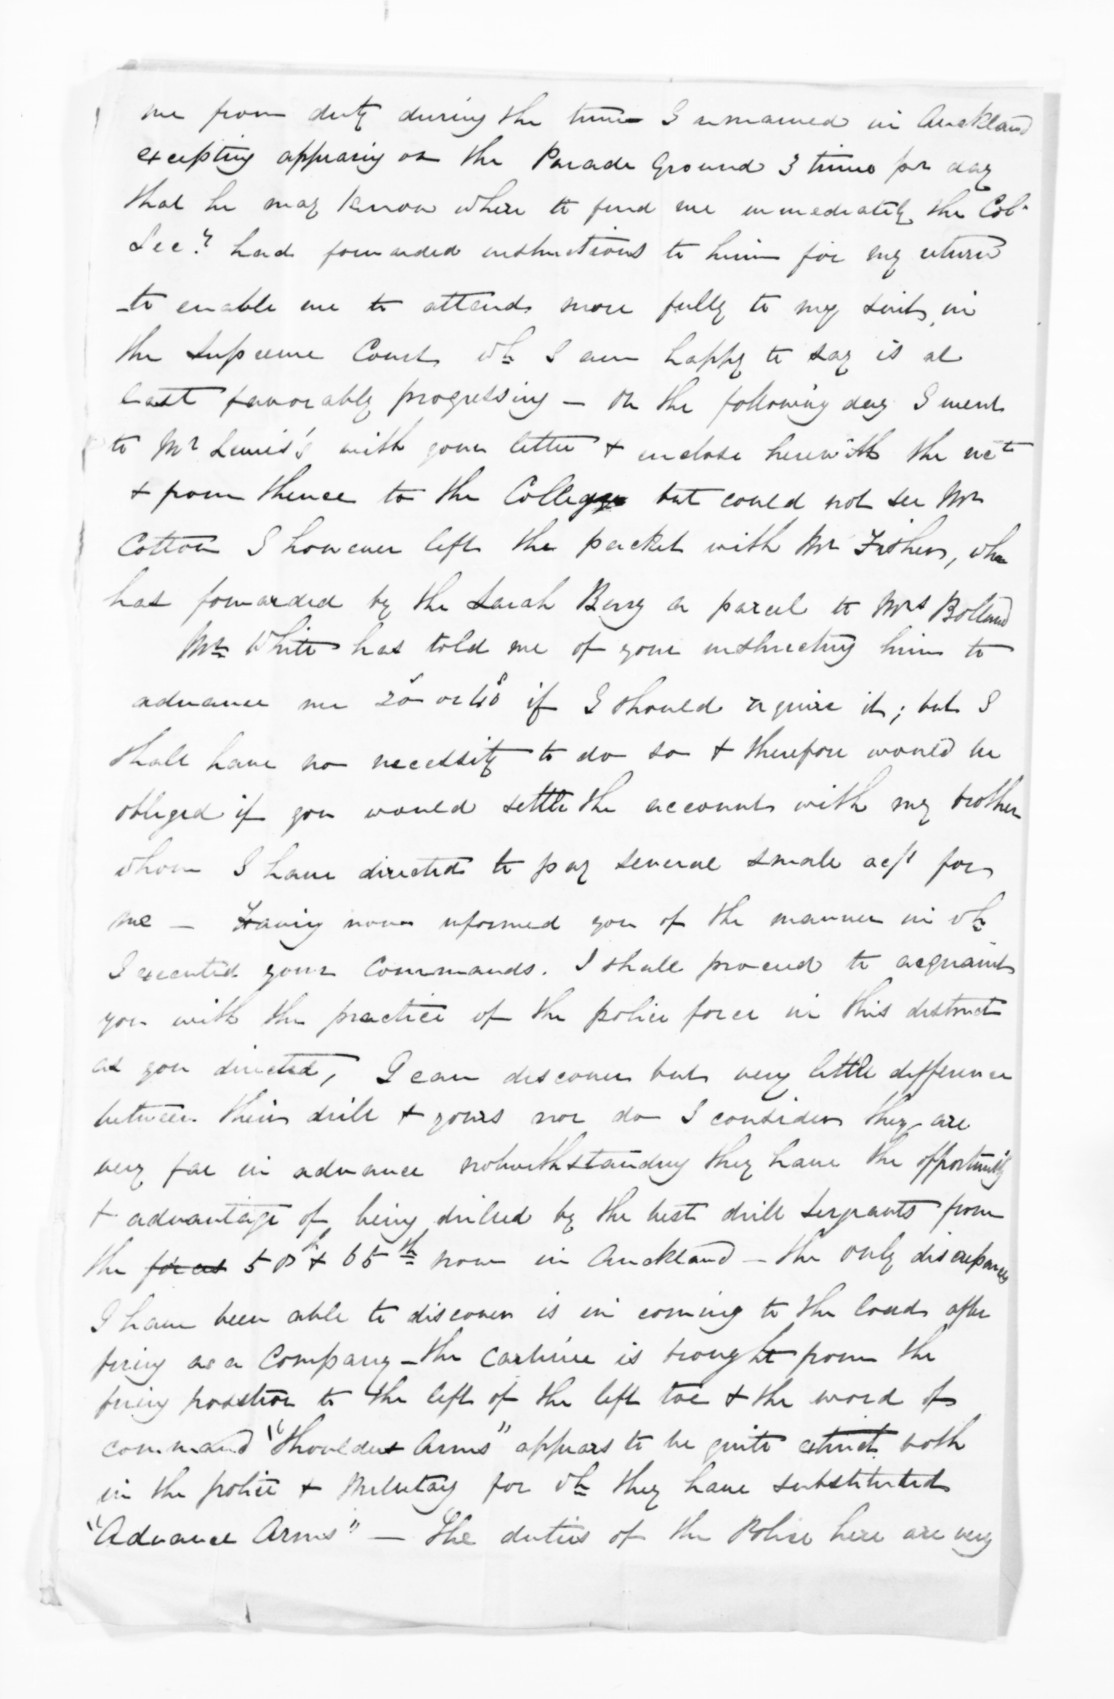 me from duty during the time I remained in Auckland
excepting appearing on the Parade Ground 3 times pr day
that he may know where to find me immediately the Col.
Secy. had forwarded instructions to him for my return
to enable me to attend more fully to my suit in
the Supreme Court wh I am happy to say is at
last favorably progressing — On the following day I went
to Mr Lewis's with your letter & inclose herewith the rect
& from thence to the College but could not see Mr
Cotton I however left the packet with Mr Fisher, who
has forwarded by the Sarah Berry a parcel to Mrs Bolland
Mr White has told me of your instructing him to
advance me 20s or 40s if I should require it; but I
shall have no necessity to do so & therefore would be
obliged if you would settle the account with my brother
whom I have directed to pay several small acts for
me — Having now informed you of the manner in wh
I executed your commands. I shall proceed to acquaint
you with the practice of the police force in this district
as you directed, I can discover but very little difference
between their drill & yours nor do I consider they are
very far in advance notwithstanding they have the opportunity
& advantage of being drilled by the best drill sergeants from
the 58th & 65th now in Auckland — the only discrepancy
I have been able to discover is in coming to the load after
firing as a Company — the carbine is brought from the
firing position to the left of the left toe & the word of
command "Shoulder Arms" appears to be quite extinct both
in the police & Military for wh they have substituted
"Advance Arms" — The duties of the Police here are very